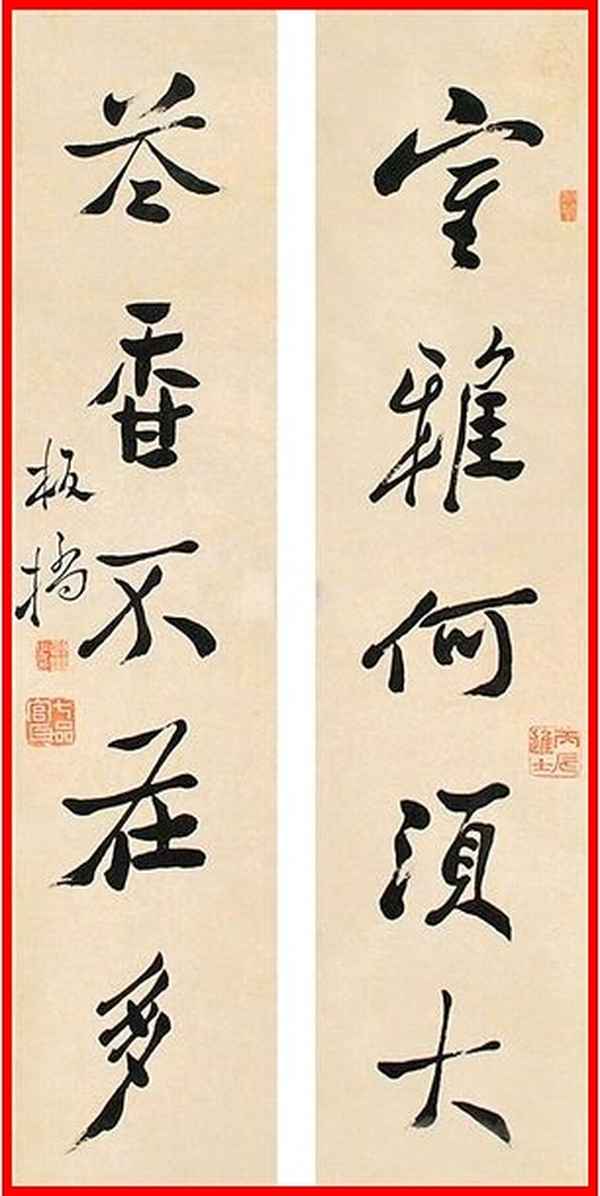 室雅何須大
花香不在多
板橋
丙辰進士
七品官耳